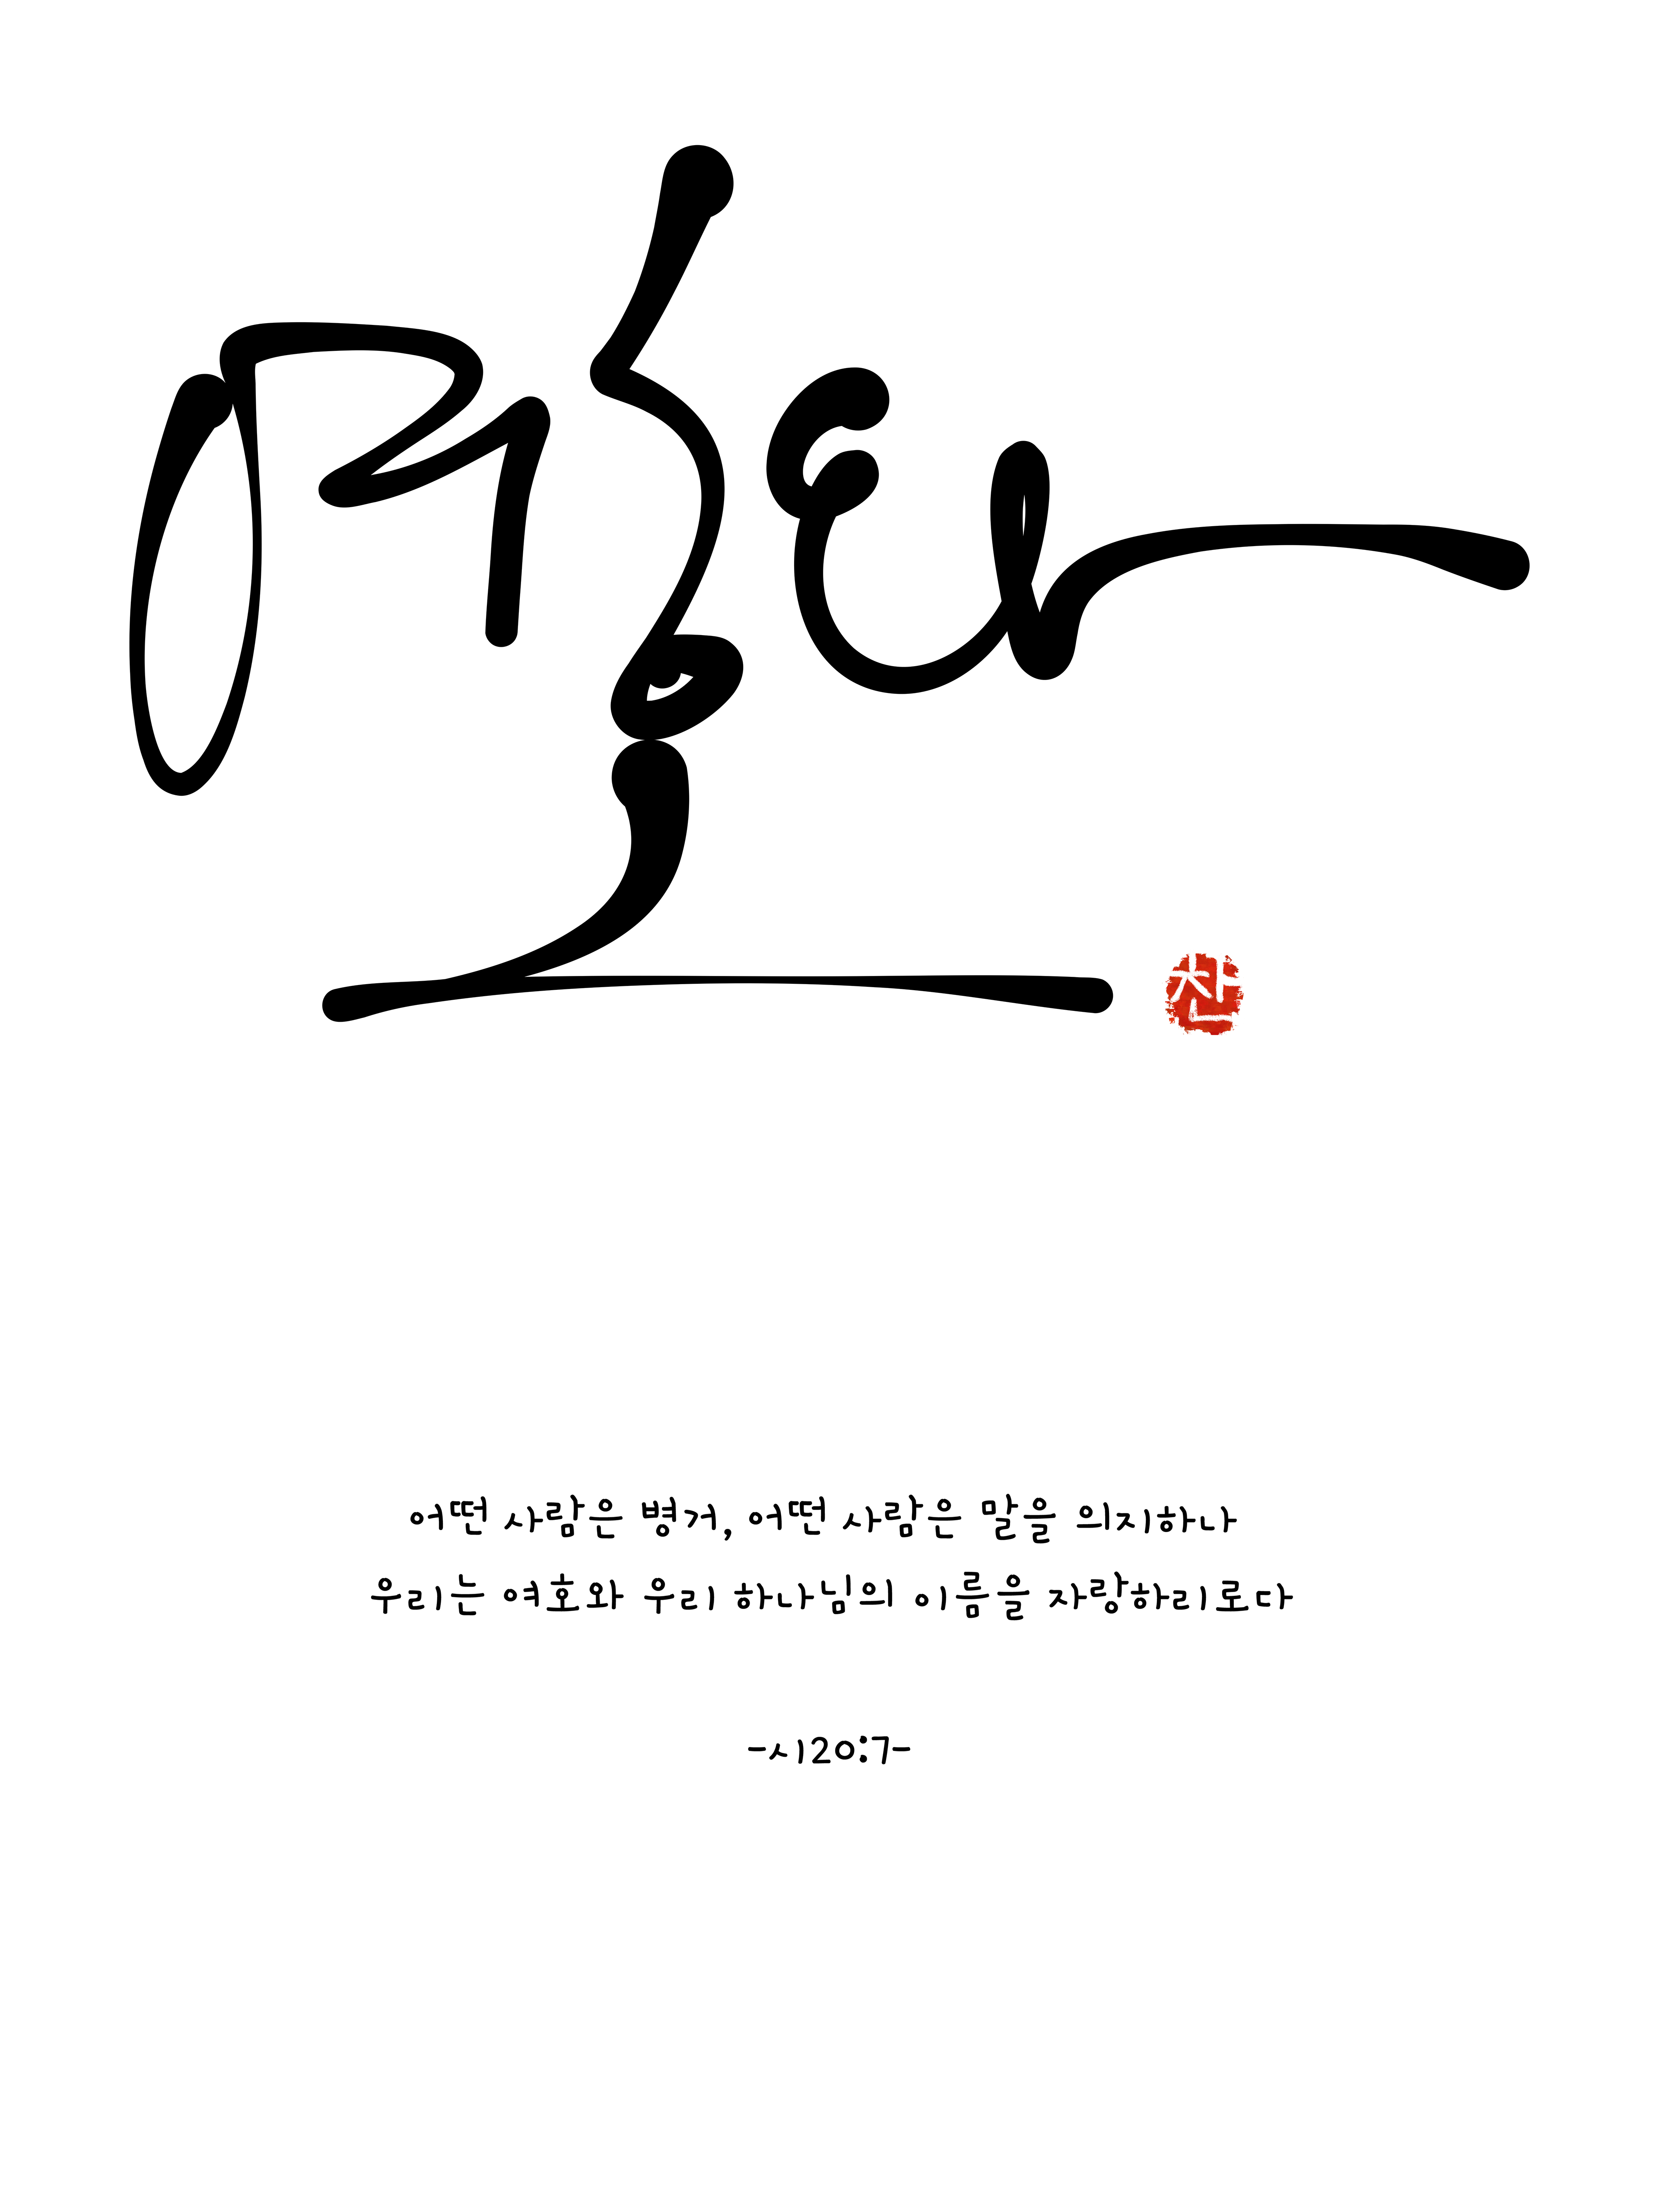 어떤 사람은 병거, 어떤 사람은 말을 의지하나
우리는 여호와 우리 하나님의 이름을 자랑하리로다
-시20:7-